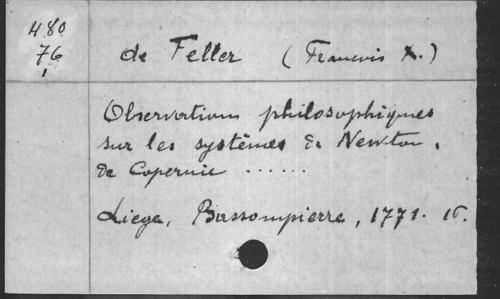 480
76
1
de Feller (Francois X.)
Observations philosophiques
sur les systêmes de Newton,
de Copernic ......
Liege, Bassompierre, 1771. 16.